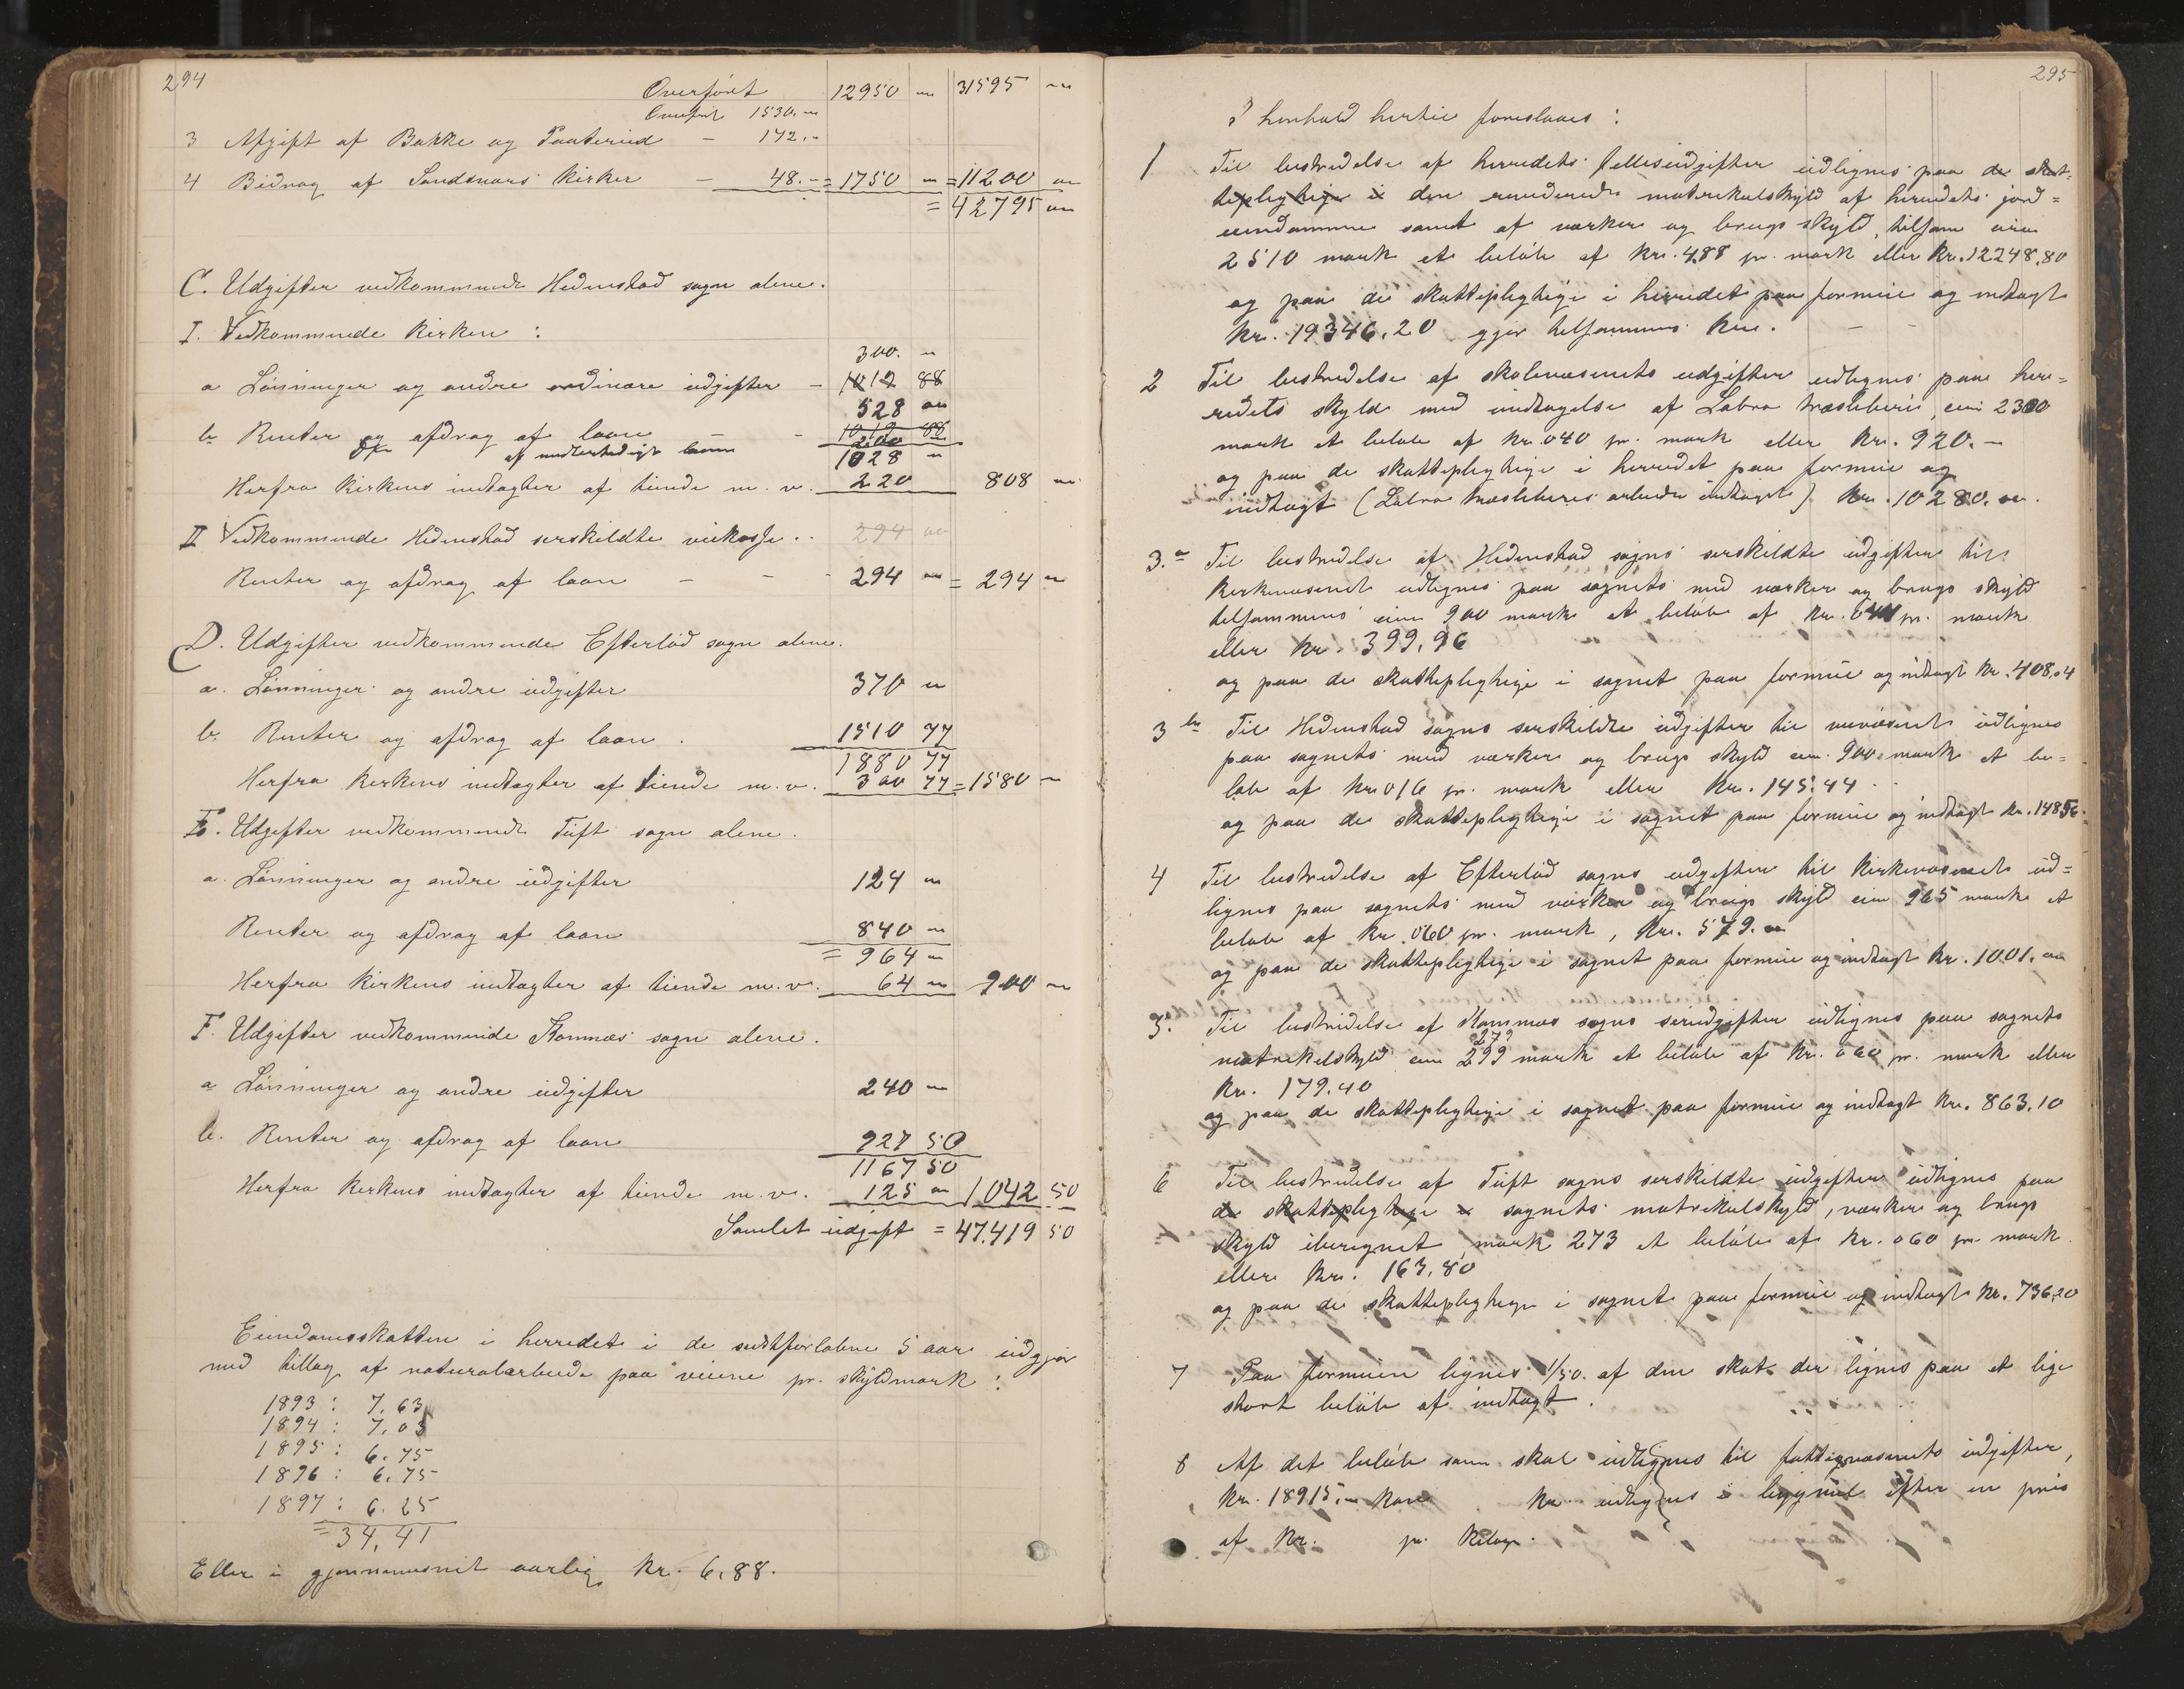 294
Overført 12950 " 31595 "
Overført 1530. "
3 Afgift af Bakke og Paaterud - 172. -
4 Bidrag af Sandsvær Kirker - 48. - = 1750 " = 11200 "
= 42795 "
C. Udgifter vedkommende Hedenstad sogn alene.
I. Vedkommende Kirken :
300. "
a Lønninger og andre ordinære udgifter - 1012 88
528 "
b. Renter og afdrag af laan - - 1012 88
af midlertidigt laan 200 "
1028 "
Herfra Kirkens indtægter af tiende m. v. 220 808 "
II Vedkommende Hedenstad særskildte veikasse . . 294 "
Renter og afdrag af laan - - - 294 " = 294 "
D. Udgifter vedkommende Efteløt sogn alene.
a. Lønninger og andre udgifter 370 "
b. Renter og afdrag af laan . 1510 77
1880 77
Herfra Kirkens indtægter af tiende m. v. 300 77 = 1580 "
E. Udgifter vedkommende Tuft sogn alene.
a. Lønninger og andre udgifter 124 "
Renter og afdrag af laan 840 "
= 964 "
Herfra Kirkens indtægter af tiende m. v. 64 " 900 "
F. Udgifter vedkommende Komnæs sogn alene.
a Lønninger og andre udgifter 240 "
b. Renter og afdrag af laan 927 50
1167 50
Herfra Kirkens indtægter af tiende m. v. 125 " 1042 50
Samlet udgift = 47.419 50
Eiendomsskatten i herredet i de sidstforløbne 5 aar udgjør
med tillæg af naturalarbeide paa veiene pr. skyldmark :
1893 : 7.63
1894 : 7.03
1895 : 6.75
1896 : 6.75
1897 : 6.25
= 34,41
Eller i gjennemsnit aarlig Kr. 6,88.
295
I henhold hertil foreslaaes :
1 Til bestridelse af herredets fællesudgifter udlignes paa de skat-
tepligtige i den reviderede matrikulskyld af herredets jord=
eiendomme samt af værker og brugs skyld, tilsam. circa
2510 mark et beløb af Kr. 4,88 pr. mark eller Kr. 12248,80
og paa de skattepligtige i herredet paa formue og indtægt
Kr. 19346,20 gjør tilsammens Kr. - -
2 Til bestridelse af skolevæsenets udgifter udlignes paa her=
redets skyld med undtagelse af Labro træsliberi, cir. 2300
mark et beløb af Kr. 040 pr. mark eller Kr. 920. -
og paa de skattepligtige i herredet paa formue og
indtægt (Labro træsliberis arbeidere indtaget) Kr. 10280. "
3.a Til bestridelse af Hedenstad sogns særskildte udgifter til
Kirkevæsenet udlignes paa sognets med værker og brugs skyld
tilsammens cirm 900 mark et beløb af Kr. 044 pr. mark
eller Kr. 399,96
og paa de skattepligtige i sognet paa formue og indtægt Kr. 408,04
3 b Til Hedenstad sogns særskildte udgifter til veivæsenet udlignes
paa sognets med værker og brugs skyld cirm. 900 mark et be=
løb af Kr. 016 pr. mark eller Kr. 145.44
og paa de skattepligtige i sognet paa formue og indtægt Kr. 148,56.
4 Til bestridelse af Efteløt sogns udgifter til Kirkevæsenet ud=
lignes paa sognets med værker og brugs skyld cirm 965 mark et
beløb af Kr. 060 pr. mark, Kr. 579. "
og paa de skattepligtige i sognet paa formue og indtægt Kr. 1001. "
5. Til bestridelse af Komnæs sogns særudgifter udlignes paa sognets
279
matrikulskyld cirm 299 mark et beløb af Kr. 060 pr. mark eller
Kr. 179.40
og paa de skattepligtige i sognet paa formue og indtægt Kr. 863,10
6 Til bestridelse af Tuft sogns særskildte udgifter udlignes paa
de skattepligtige i sognets matrikulskyld, værker og brugs
skyld iberegnet, mark 273 et beløb af Kr. 060 pr. mark
eller Kr. 163,80
og paa de skattepligtige i sognet paa formue og indtægt Kr. 736,20
7 Paa formuen lignes 1/50. af den skat der lignes paa et lige
stort beløb af indtægt .
8 Af det beløb som skal udlignes til fattigvæsenets udgifter,
Kr. 18915, - Kan Kr. udlignes i bygmel efter en pris
af Kr. pr. Kilogr.